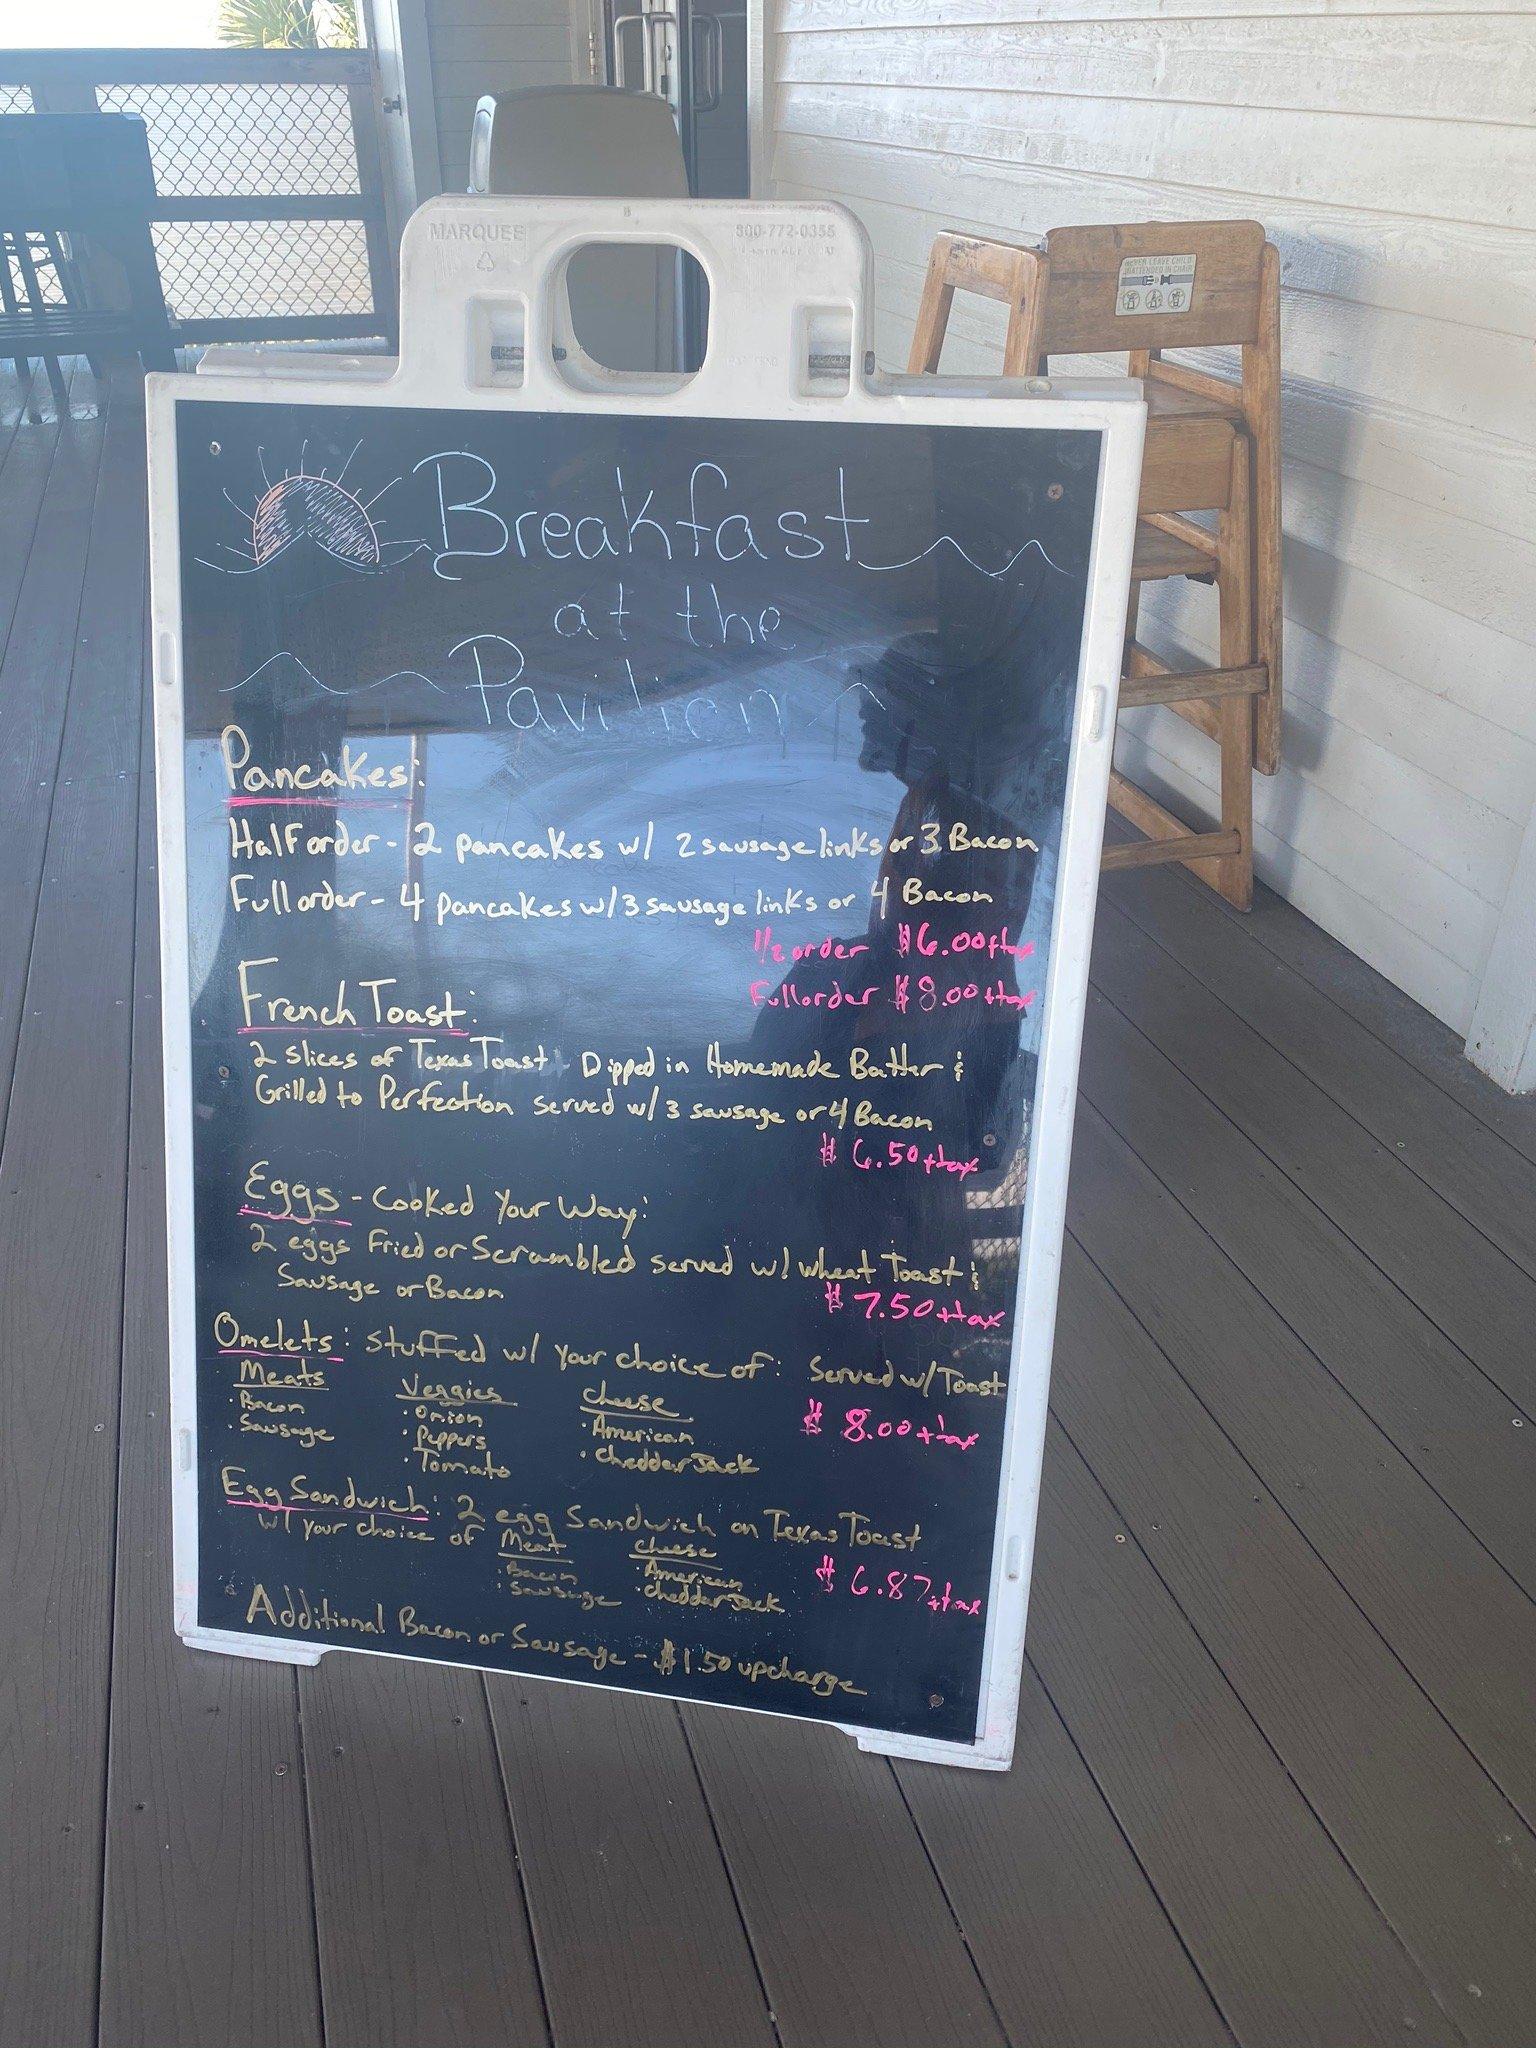 MARQUEE
800-772-0355
NEVER LEAVE CHILD
UNATTENDED IN CHAIR
Breakfast
at the
Pavilion
Pancakes:
Half order - 2 pancakes w/ 2 sausage links or 3 Bacon
Full order - 4 pancakes w/ 3 sausage links or 4 Bacon
1/2 order $6.00 + tax
Full order $8.00 + tax
French Toast:
2 slices of Texas Toast - Dipped in Homemade Batter &
Grilled to Perfection served w/ 3 sausage or 4 Bacon
$6.50 + tax
Eggs - Cooked Your Way:
2 eggs Fried or Scrambled served w/ wheat Toast &
Sausage or Bacon
$7.50 + tax
Omelets: Stuffed w/ your choice of: Served w/ Toast
Meats Veggies Cheese
· Bacon · Onion · American
· Sausage · Peppers · Cheddar Jack
· Tomato
$8.00 + tax
Egg Sandwich: 2 egg Sandwich on Texas Toast
w/ your choice of Meat Cheese
· Bacon · American
· Sausage · Cheddar Jack
$6.87 + tax
Additional Bacon or Sausage - $1.50 upcharge